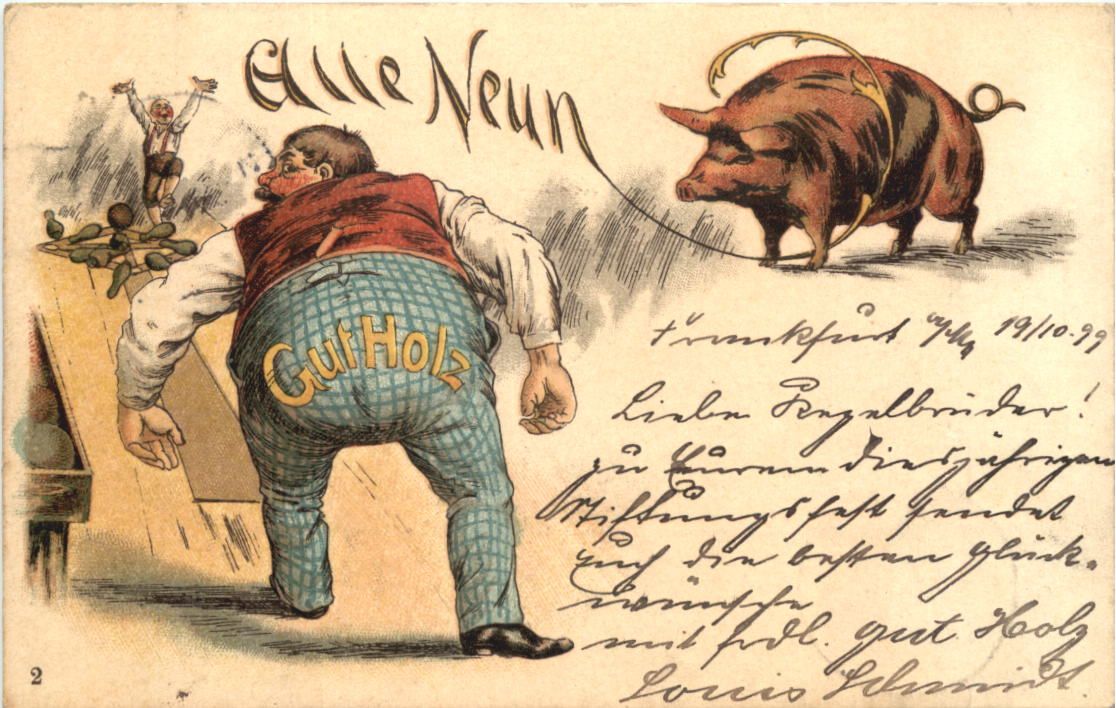 Alle Neun
Gut Holz
Frankfurt a/M, 19/10.99
Liebe Kegelbrüder!
zu Eurem diesjährigen
Stiftungsfest sendet
Euch die besten Glück-
wünsche
mit frdl. gut Holz
Louis Schmidt.
2